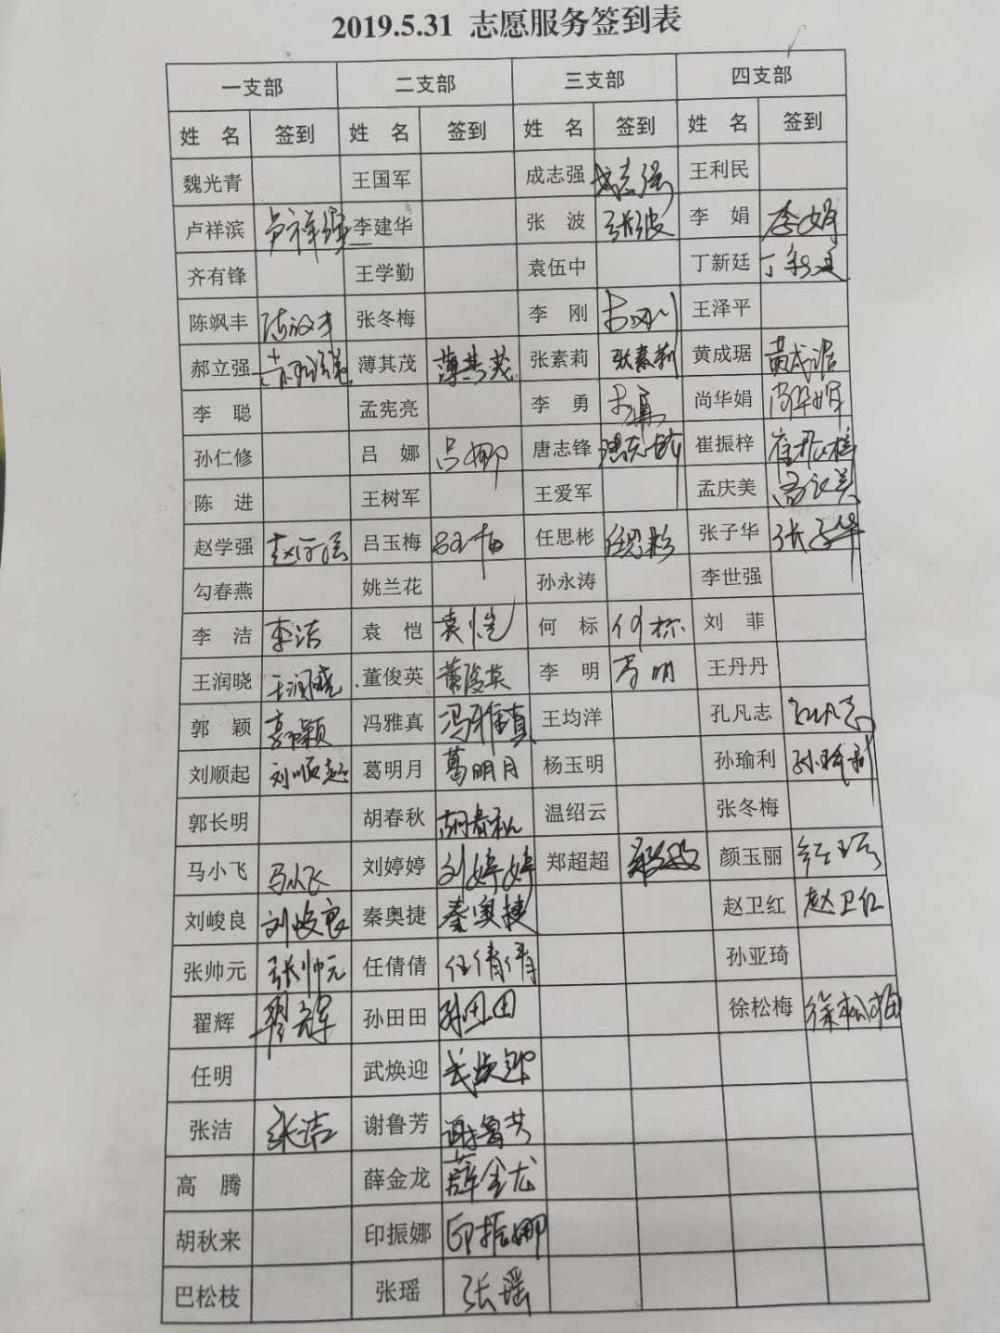 2019.5.31 志愿服务签到表
一支部 二支部 三支部 四支部
姓 名 签到 姓 名 签到 姓 名 签到 姓 名 签到
魏光青 王国军 成志强 成志强 王利民
卢祥滨 卢祥滨 李建华 张 波 张波 李 娟 李娟
齐有锋 王学勤 袁伍中 丁新廷 丁新廷
陈飒丰 张冬梅 李 刚 李刚 王泽平
郝立强 薄其茂 薄其茂 张素莉 张素莉 黄成琚 黄成琚
李 聪 孟宪亮 李 勇 李勇 尚华娟 尚华娟
孙仁修 吕 娜 吕娜 唐志锋 崔振梓 崔振梓
陈 进 王树军 王爱军 孟庆美
赵学强 吕玉梅 吕玉梅 任思彬 任思彬 张子华 张子华
勾春燕 姚兰花 孙永涛 李世强
李 洁 李洁 袁 恺 袁恺 何 标 何标 刘 菲
王润晓 王润晓 董俊英 董俊英 李 明 李明 王丹丹
郭 颖 郭颖 冯雅真 冯雅真 王均洋 孔凡志 孔凡志
刘顺起 刘顺起 葛明月 葛明月 杨玉明 孙瑜利 孙瑜利
郭长明 胡春秋 胡春秋 温绍云 张冬梅
马小飞 马小飞 刘婷婷 刘婷婷 郑超超 颜玉丽
刘峻良 刘峻良 秦奥捷 秦奥捷 赵卫红 赵卫红
张帅元 张帅元 任倩倩 任倩倩 孙亚琦
翟辉 翟辉 孙田田 孙田田 徐松梅 徐松梅
任明 武焕迎 武焕迎
张洁 张洁 谢鲁芳 谢鲁芳
高 腾 薛金龙 薛金龙
胡秋来 印振娜 印振娜
巴松枝 张瑶 张瑶